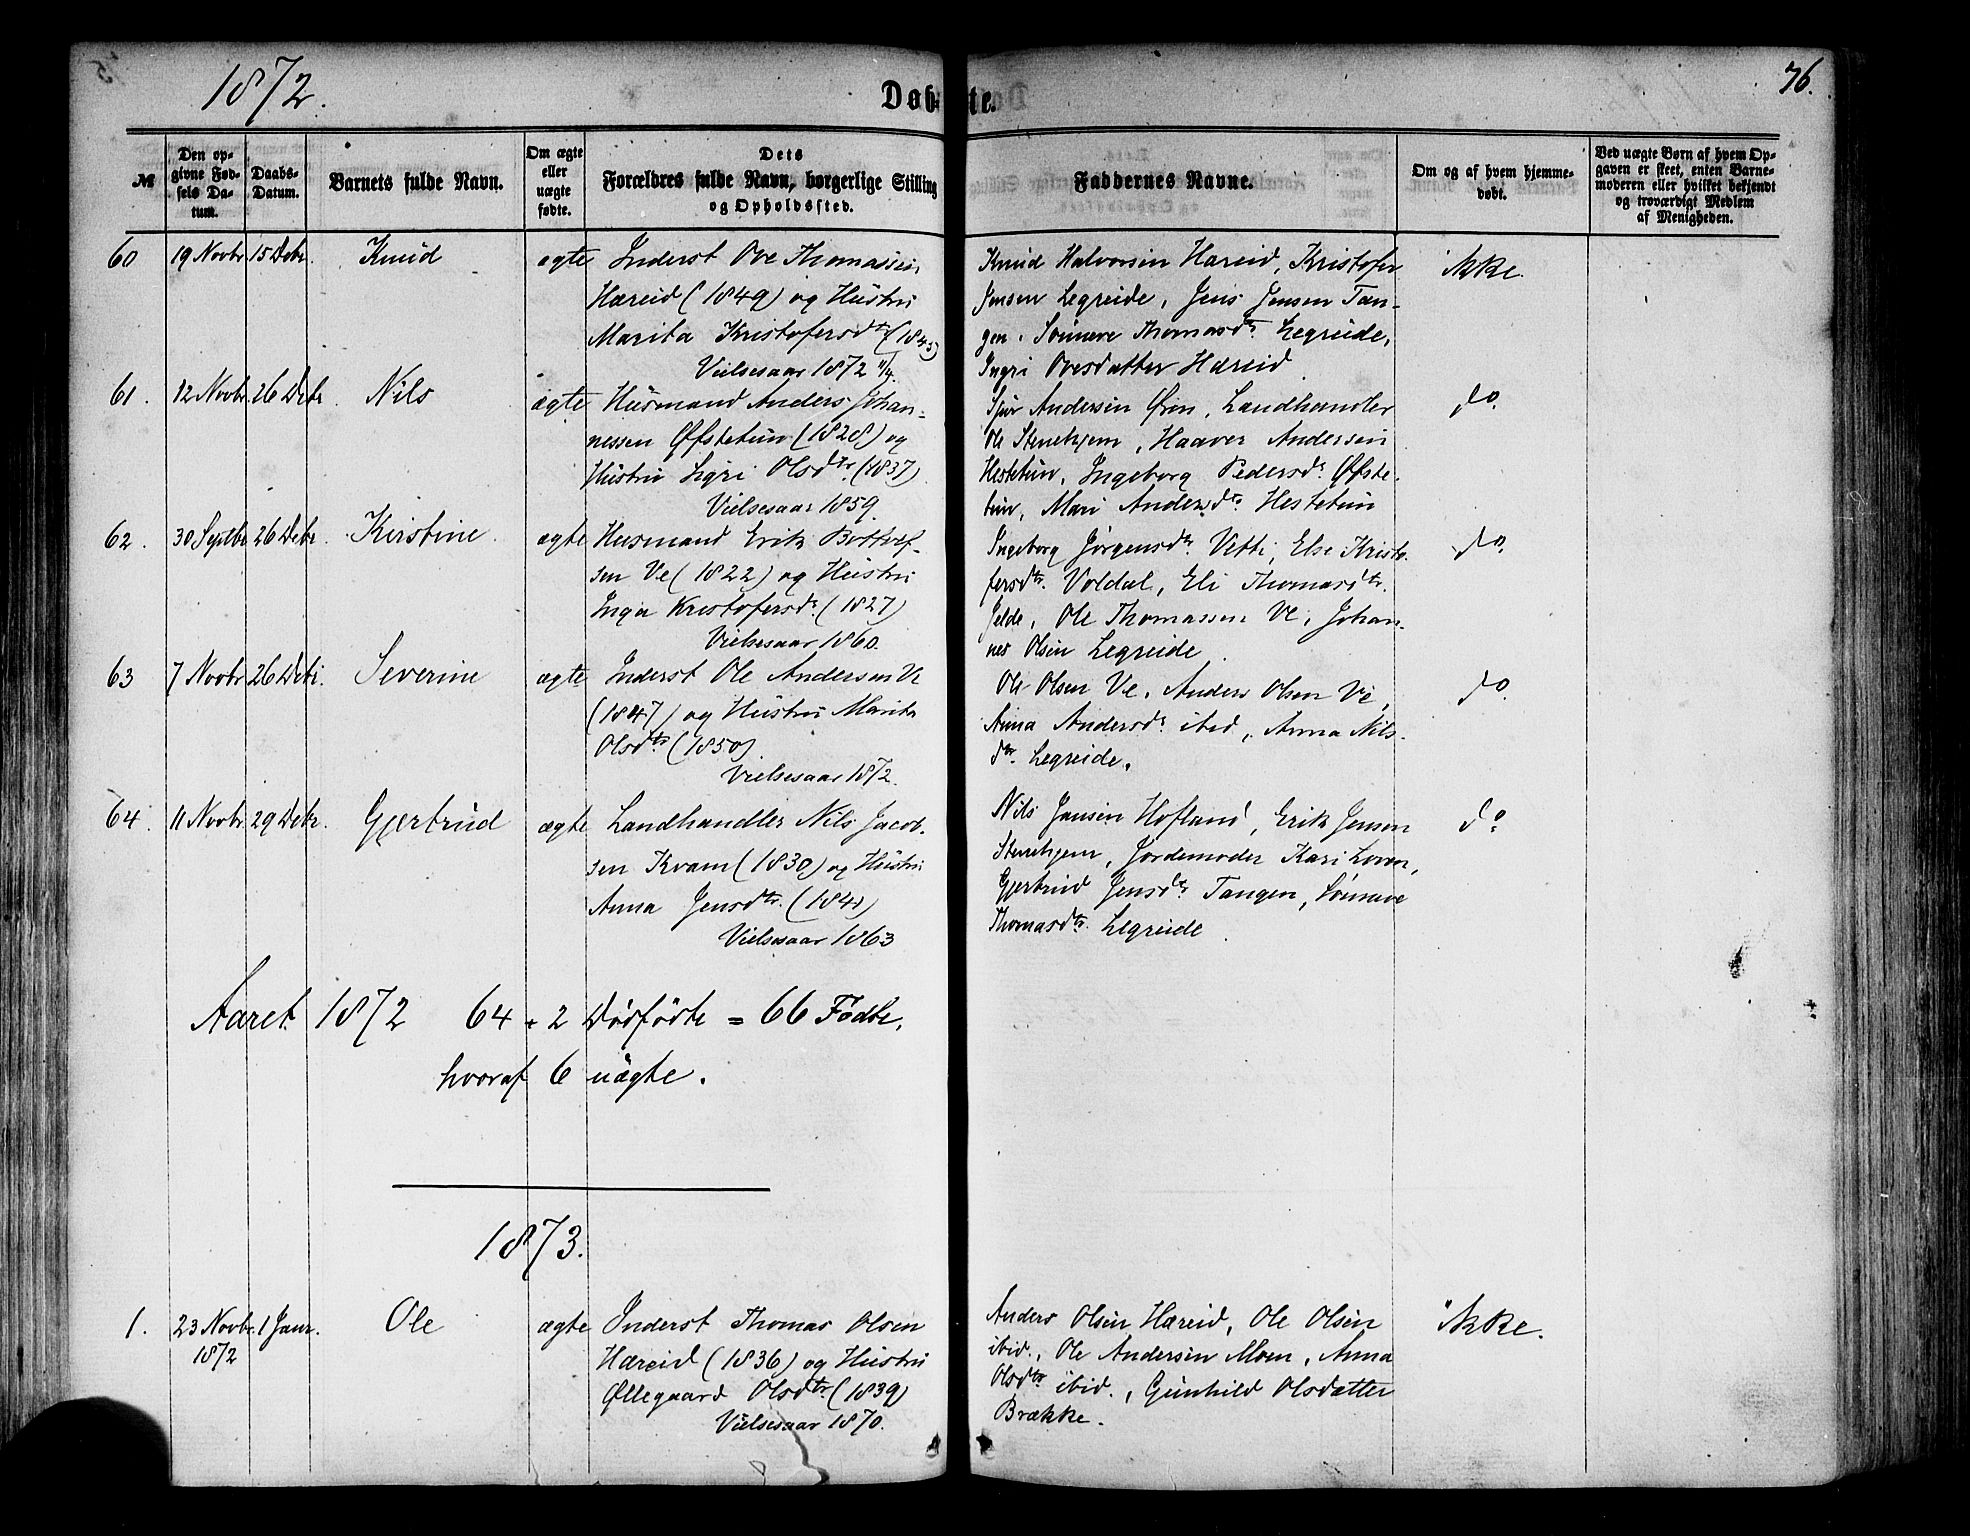 1872.
Døbte.
76.
№
Den opgivne Fødsels Datum.
Daabs-Datum.
Barnets fulde Navn.
Om ægte eller uægte fødte.
Dets Forældres fulde Navn, borgerlige Stilling og Opholdssted.
Faddernes Navne.
Om og af hvem hjemmedøbt.
Ved uægte Børn af hvem Opgaven er skeet, enten Barnemoderen eller hvilket bekjendt og troværdigt Medlem af Menigheden.
60 19 Novbr 15 Debr. Knud ægte Inderst Ove Thomassen
Hæreid (1849) og Hustru
Marita Kristofersdtr (1845)
Vielsesaar 1872 11/4.
Knud Halvorsen Hæreid, Kristofer
Jensen Legreide, Jens Jensen Tan-
gen, Sønneve Thomasdtr Legreide,
Ingri Ovesdatter Hæreid
ikke.
61. 12 Novbr. 26 Debr. Nils ægte Husmand Anders Johan-
nessen Øfstetun (1828) og
Hustru Sigri Olsdtr. (1837)
Vielsesaar 1859.
Sjur Andersen Øren, Landhandler
Ole Stenehjem, Haaver Andersen
Hestetun, Ingeborg Pedersdr. Øfste-
tun, Mari Andersdtr. Hestetun
do.
62. 30 Septbr 26 Debr. Kirstine. ægte Husmand Erik Bottolf-
sen Ve (1822) og Hustru
Inga Kristofersdr. (1827)
Vielsesaar 1860.
Ingeborg Jørgensdtr. Vetti, Else Kristo-
fersdtr. Voldal, Eli Thomasdtr.
Jelde, Ole Thomassen Ve, Johan-
nes Olsen Legreide
do.
63 7 Novbr 26 Debr. Severine ægte Inderst Ole Andersen Ve
(1847) og Hustru Marita
Olsdtr (1850).
Vielsesaar 1872.
Ole Olsen Ve, Anders Olsen Ve,
Anna Andersdr ibid., Anna Nils-
dtr. Legreide.
do.
64. 11 Novbr. 29 Debr. Gjertrud ægte Landhandler Nils Jacob-
sen Kvam (1830) og Hustru
Anna Jensdtr. (1841)
Vielsesaar 1863
Nils Jansen Hofland, Erik Jensen
Stenehjem, Jordemoder Kari Loven,
Gjertrud Jensdtr Tangen, Sønneve
Thomasdtr. Legreide
do
Aaret 1872 64 + 2 Dødfødte = 66 Fødte,
hvoraf 6 uægte.
1873.
1. 23 Novbr. 1 Janr. Ole ægte Inderst Thomas Olsen
1872
Hæreid (1836) og Hustru
Øllegaard Olsdtr. (1839)
Vielsesaar 1870.
Anders Olsen Hæreid, Ole Olsen
ibid., Ole Andersen Moen, Anna
Olsdtr ibid., Gunhild Olsdatter
Brække.
ikke.